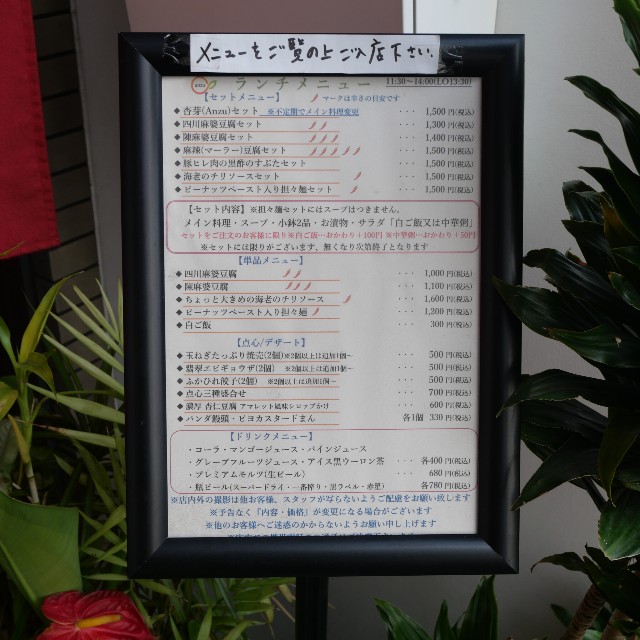 メニューをご覧の上ご入店下さい。
ランチメニュー 11:30～14:00(LO13:30)
【セットメニュー】 マークは辛さの目安です
◆杏芽(Anzu)セット ※不定期でメイン料理変更 ・・・ 1,500円(税込)
◆四川麻婆豆腐セット ・・・ 1,300円(税込)
◆陳麻婆豆腐セット ・・・ 1,400円(税込)
◆麻辣(マーラー)豆腐セット ・・・ 1,500円(税込)
◆豚ヒレ肉の黒酢のすぶたセット ・・・ 1,500円(税込)
◆海老のチリソースセット ・・・ 1,500円(税込)
◆ピーナッツペースト入り担々麺セット ・・・ 1,500円(税込)
【セット内容】※担々麺セットにはスープはつきません。
メイン料理・スープ・小鉢2品・お漬物・サラダ「白ご飯又は中華粥」
セットをご注文のお客様に限り※白ご飯…おかわり+100円 ※中華粥…おかわり+50円
※セットには限りがございます、無くなり次第終了となります
【単品メニュー】
◆四川麻婆豆腐 ・・・ 1,000円(税込)
◆陳麻婆豆腐 ・・・ 1,100円(税込)
◆ちょっと大きめの海老のチリソース ・・・ 1,600円(税込)
◆ピーナッツペースト入り担々麺 ・・・ 1,200円(税込)
◆白ご飯 ・・・ 300円(税込)
【点心/デザート】
◆玉ねぎたっぷり焼売(2個)※2個以上は追加1個～ ・・・ 500円(税込)
◆翡翠エビギョウザ(2個)※2個以上は追加1個～ ・・・ 500円(税込)
◆ふかひれ餃子(2個) ※2個以上は追加1個～ ・・・ 500円(税込)
◆点心三種盛合せ ・・・ 700円(税込)
◆濃厚 杏仁豆腐 アマレット風味シロップかけ ・・・ 600円(税込)
◆パンダ饅頭・ピヨカスタードまん 各1個 330円(税込)
【ドリンクメニュー】
・コーラ・マンゴージュース・パインジュース
・グレープフルーツジュース・アイス黒ウーロン茶 ・・・ 各400円(税込)
・プレミアムモルツ(生ビール) ・・・ 680円(税込)
・瓶ビール(スーパードライ・一番搾り・黒ラベル・赤星) ・・・ 各780円(税込)
※店内外の撮影は他お客様、スタッフが写らないようご配慮をお願い致します
※予告なく『内容・価格』が変更になる場合がございます
※他のお客様へご迷惑のかからないようお願い申し上げます